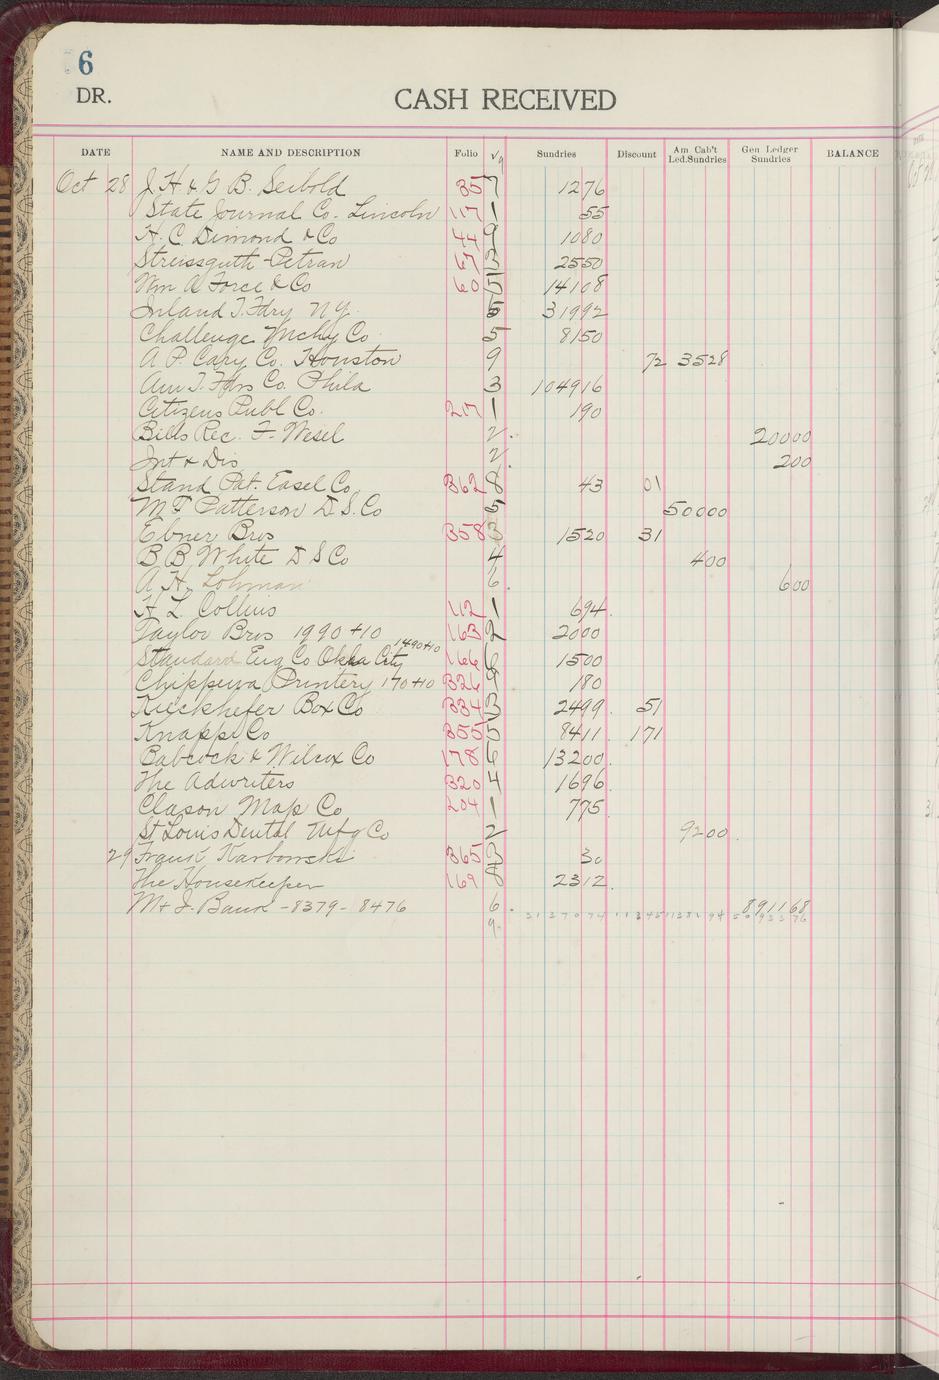 6
DR. CASH RECEIVED
DATE NAME AND DESCRIPTION Folio Sundries Discount Am Cab't Led.Sundries Gen Ledger Sundries BALANCE
Oct 28 J. H. & G. B. Seibold 35 7 1276
State Journal Co. Lincoln 117 1 55
H. C. Dimond & Co 44 9 1080
Streissguth-Petran 67 2550
Wm A Force & Co 60 5 14108
Inland T. Fdry N.Y. 5 31992
Challenge Mchy Co 5 8150
A. P. Cary Co. Houston 9 72 3528
Am T. Fdrs Co. Phila 3 104916
Citizens Publ Co. 217 1 190
Bills Rec. F. Wesel 2 20000
Int & Dis 2 200
Stand Pat. Easel Co 362 8 43 01
M F Patterson D. S. Co 5 50000
Ebner Bros 358 3 1520 31
B B White D S Co 4 400
A. H. Lohman 6 600
H L Collins 112 1 694
Taylor Bros 1990 + 10 163 2 2000
Standard Eng Co Okla City 1490+10 166 6 1500
Chippewa Printery 170 + 10 326 9 180
Kieckhefer Box Co 334 3 2499 51
Knapp Co 355 5 8411 171
Babcock & Wilcox Co 178 6 13200
The Adwriters 320 4 1696
Clason Map Co 204 1 775
St Louis Dental Mfg Co 2 9200
29 Frank Karbowski 365 3 30
The Housekeeper 169 8 2312
M & I. Bank - 8379 - 8476 6 891168
9